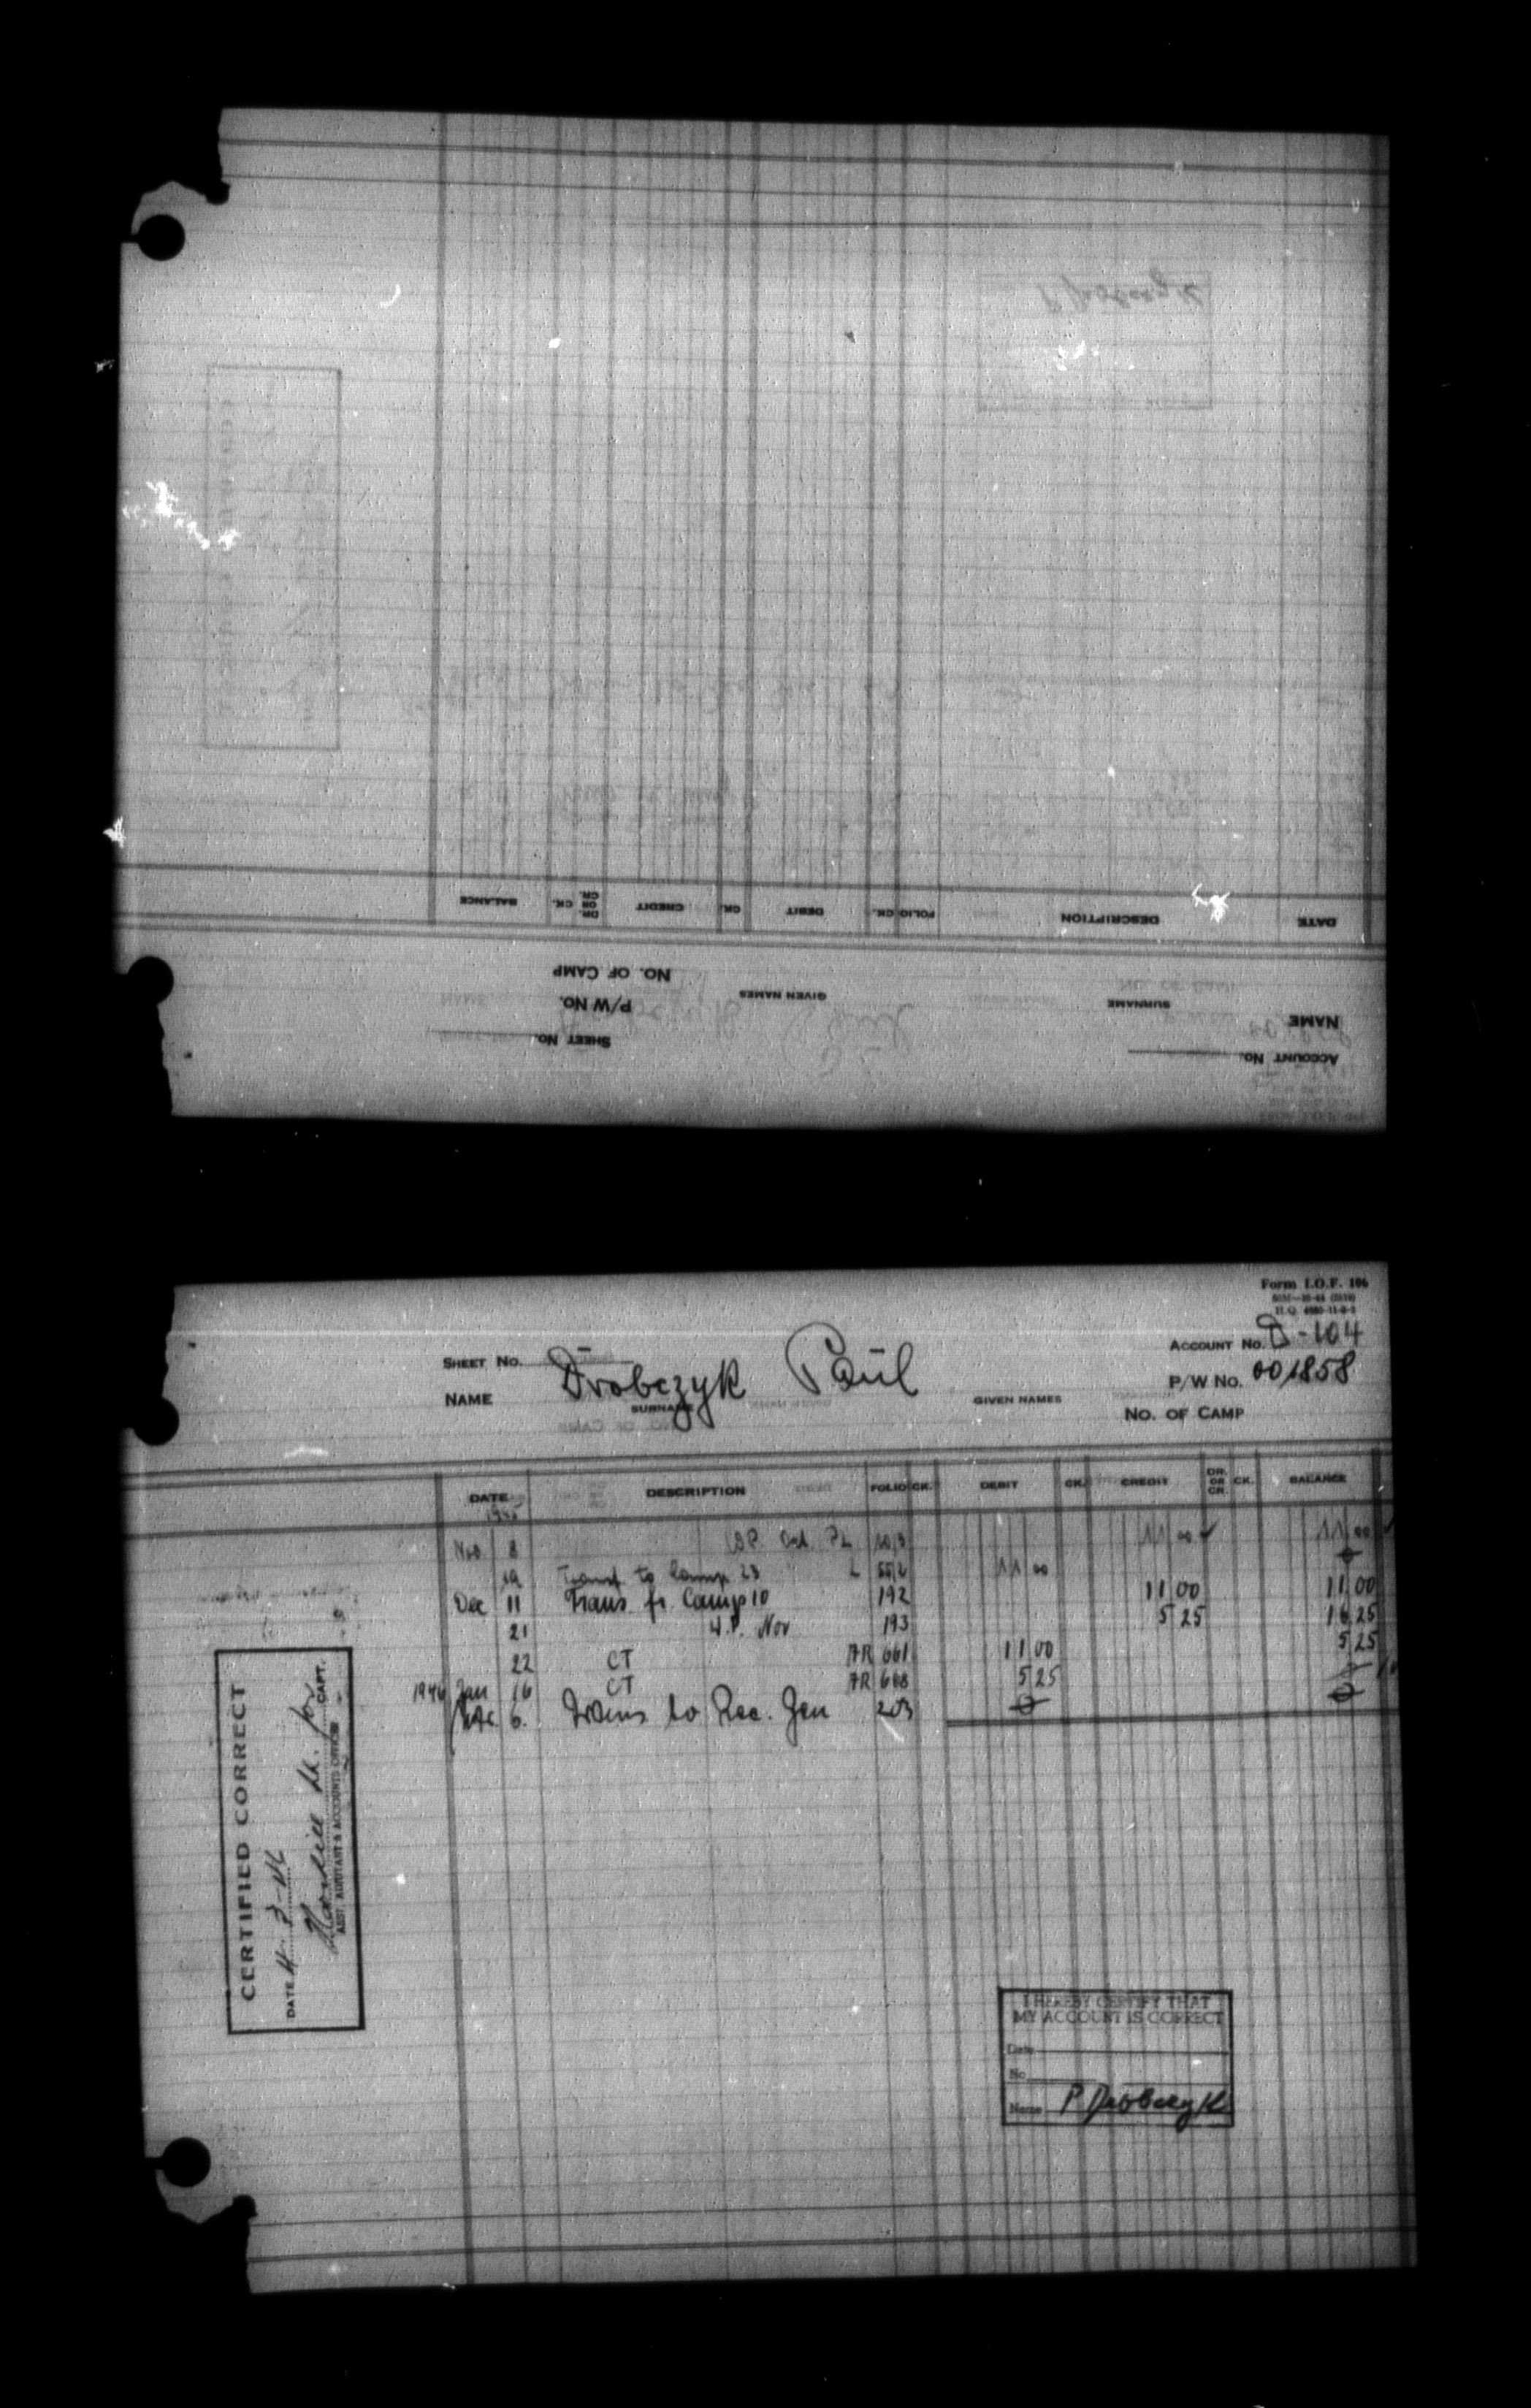 BALANCE CK. DR. OR CR. CREDIT CK. DEBIT CK. FOLIO DESCRIPTION DATE
NO. OF CAMP
P/W NO. GIVEN NAMES SURNAME NAME
SHEET NO. ACCOUNT NO.
Form I.O.F. 106
ACCOUNT NO. D-104
SHEET NO.
P/W NO. 001858
NAME Drobczyk Paul
SURNAME GIVEN NAMES
NO. OF CAMP
DATE DESCRIPTION FOLIO CK. DEBIT CK. CREDIT DR. OR CR. CK. BALANCE
Nov 8 11 00 ✓ 11 00 ✓
19 Transf to Camp 23 11 00
Dec 11 Trans. fr. Camp 10 192 11 00 11 00
21 W.P. Nov 193 5 25 16 25
22 CT AR 661 11 00 5 25
1946 Jan 16 CT AR 668 5 25
6. Trans to Rec. Gen 203
CERTIFIED CORRECT
DATE
CAPT.
ASST. ADJUTANT & ACCOUNTS OFFICER
I HEREBY CERTIFY THAT
MY ACCOUNT IS CORRECT
Date
No
Name P Drobczyk